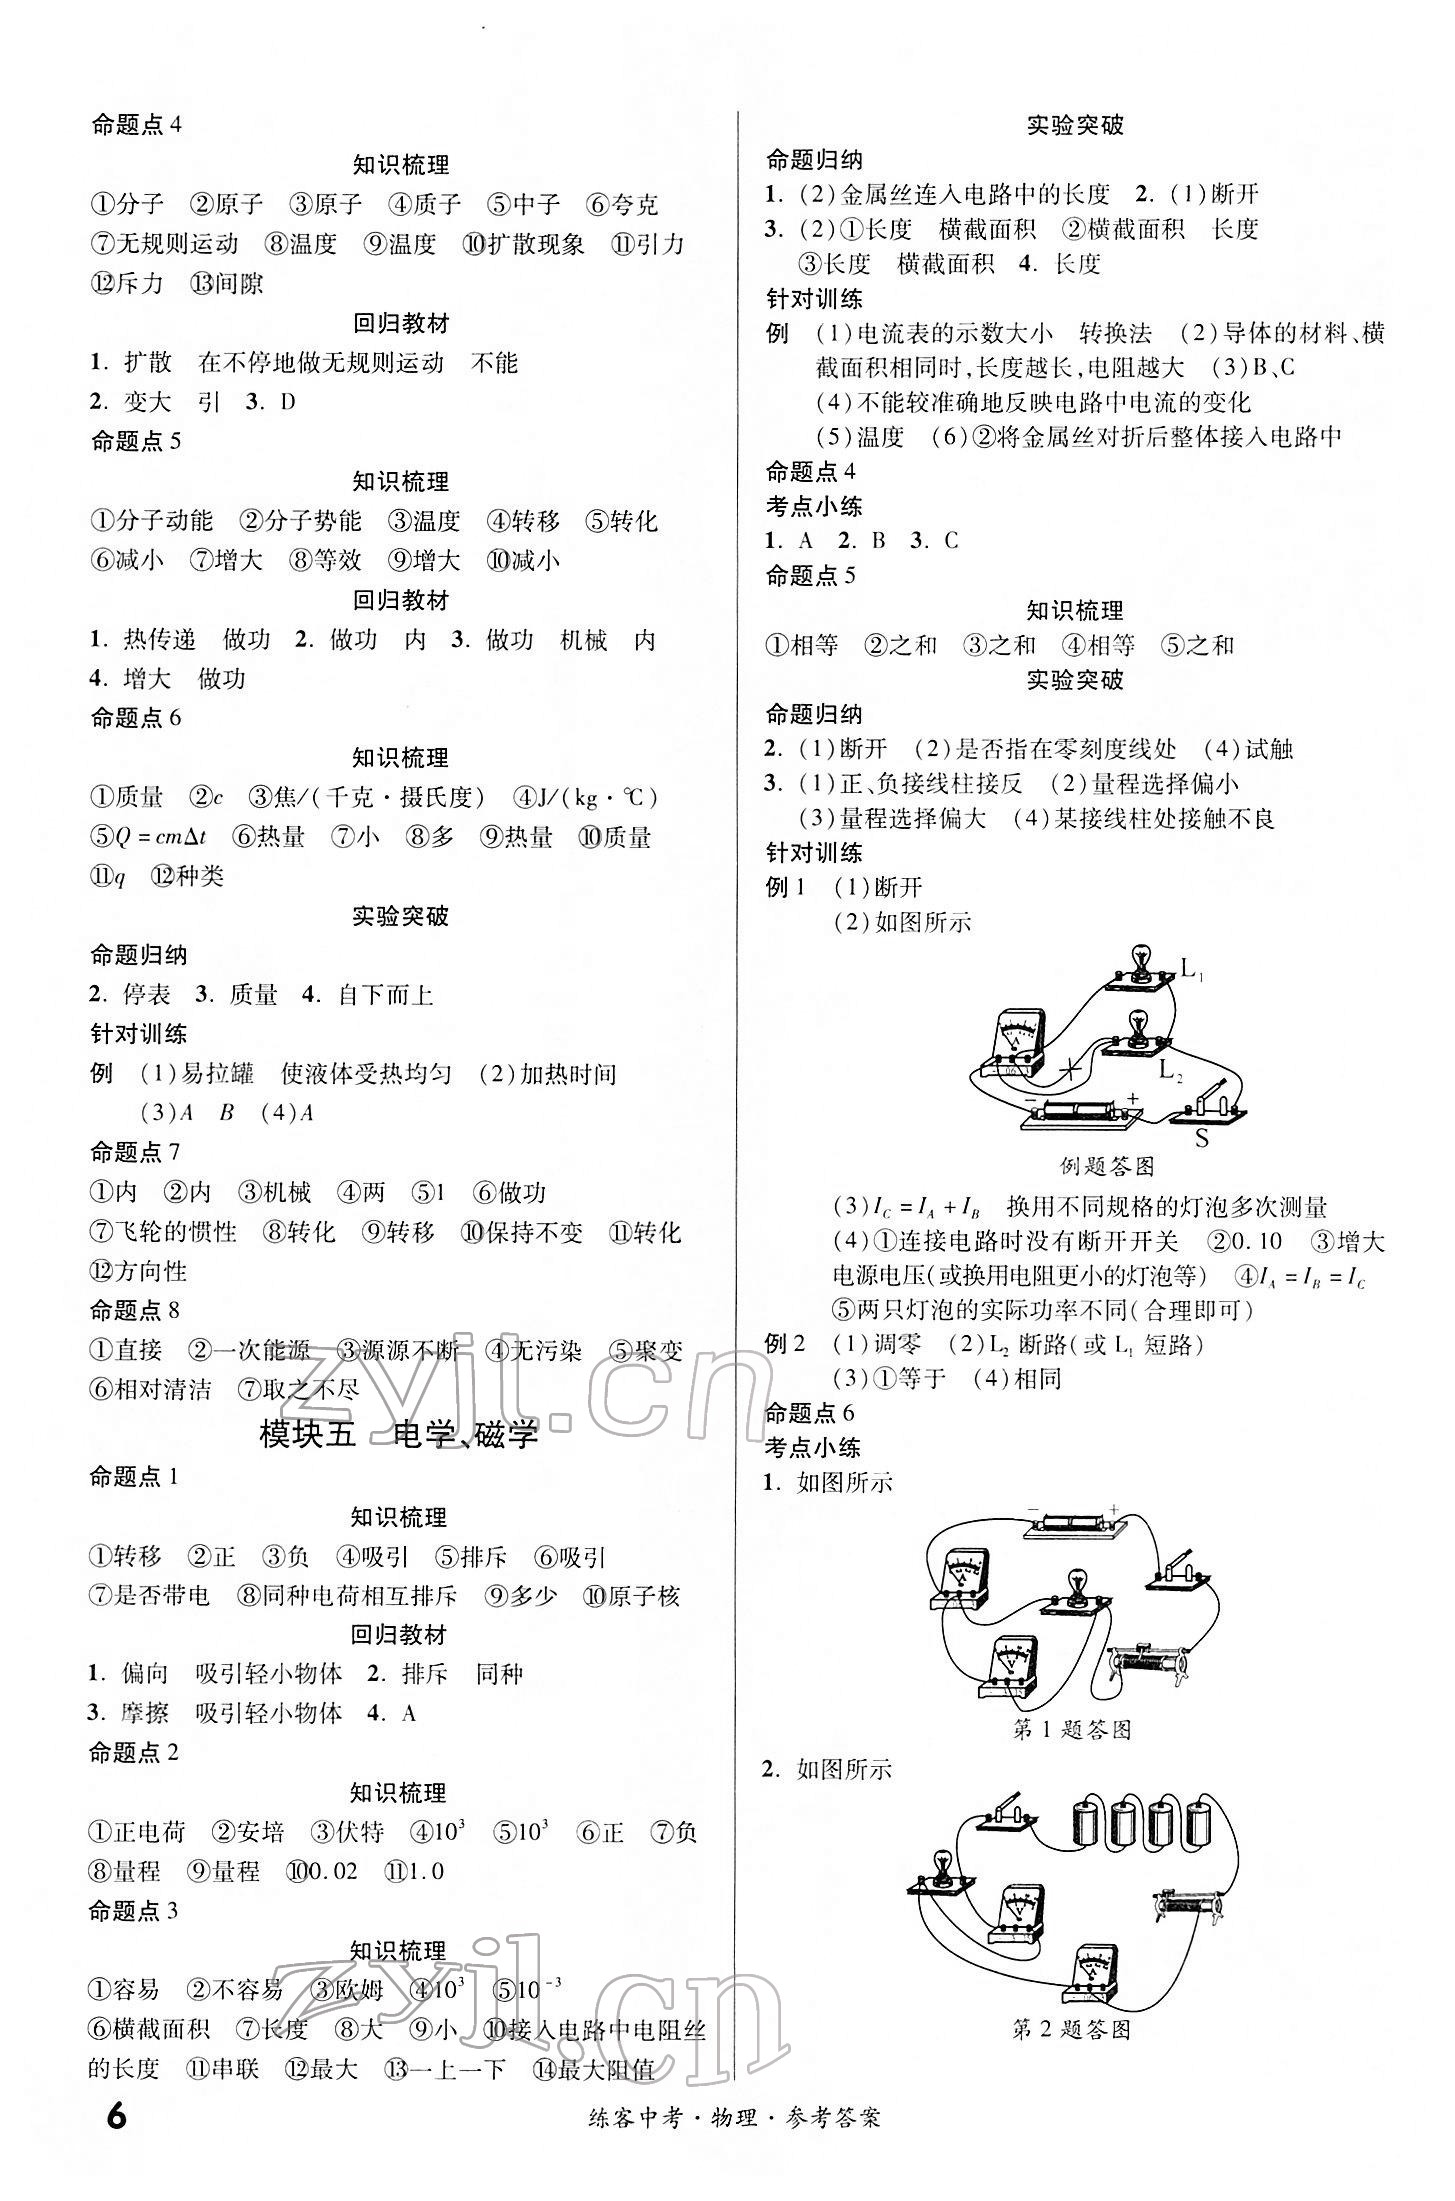 命题点 4
知识梳理
①分子 ②原子 ③原子 ④质子 ⑤中子 ⑥夸克
⑦无规则运动 ⑧温度 ⑨温度 ⑩扩散现象 ⑪引力
⑫斥力 ⑬间隙
回归教材
1. 扩散 在不停地做无规则运动 不能
2. 变大 引 3. D
命题点 5
知识梳理
①分子动能 ②分子势能 ③温度 ④转移 ⑤转化
⑥减小 ⑦增大 ⑧等效 ⑨增大 ⑩减小
回归教材
1. 热传递 做功 2. 做功 内 3. 做功 机械 内
4. 增大 做功
命题点 6
知识梳理
①质量 ②c ③焦/(千克·摄氏度) ④J/(kg·℃)
⑤Q=cmΔt ⑥热量 ⑦小 ⑧多 ⑨热量 ⑩质量
⑪q ⑫种类
实验突破
命题归纳
2. 停表 3. 质量 4. 自下而上
针对训练
例 (1)易拉罐 使液体受热均匀 (2)加热时间
(3)A B (4)A
命题点 7
①内 ②内 ③机械 ④两 ⑤1 ⑥做功
⑦飞轮的惯性 ⑧转化 ⑨转移 ⑩保持不变 ⑪转化
⑫方向性
命题点 8
①直接 ②一次能源 ③源源不断 ④无污染 ⑤聚变
⑥相对清洁 ⑦取之不尽
模块五 电学、磁学
命题点 1
知识梳理
①转移 ②正 ③负 ④吸引 ⑤排斥 ⑥吸引
⑦是否带电 ⑧同种电荷相互排斥 ⑨多少 ⑩原子核
回归教材
1. 偏向 吸引轻小物体 2. 排斥 同种
3. 摩擦 吸引轻小物体 4. A
命题点 2
知识梳理
①正电荷 ②安培 ③伏特 ④10³ ⑤10³ ⑥正 ⑦负
⑧量程 ⑨量程 ⑩0.02 ⑪1.0
命题点 3
知识梳理
①容易 ②不容易 ③欧姆 ④10³ ⑤10⁻³
⑥横截面积 ⑦长度 ⑧大 ⑨小 ⑩接入电路中电阻丝
的长度 ⑪串联 ⑫最大 ⑬一上一下 ⑭最大阻值
实验突破
命题归纳
1. (2)金属丝连入电路中的长度 2. (1)断开
3. (2)①长度 横截面积 ②横截面积 长度
③长度 横截面积 4. 长度
针对训练
例 (1)电流表的示数大小 转换法 (2)导体的材料、横
截面积相同时,长度越长,电阻越大 (3)B、C
(4)不能较准确地反映电路中电流的变化
(5)温度 (6)②将金属丝对折后整体接入电路中
命题点 4
考点小练
1. A 2. B 3. C
命题点 5
知识梳理
①相等 ②之和 ③之和 ④相等 ⑤之和
实验突破
命题归纳
2. (1)断开 (2)是否指在零刻度线处 (4)试触
3. (1)正、负接线柱接反 (2)量程选择偏小
(3)量程选择偏大 (4)某接线柱处接触不良
针对训练
例 1 (1)断开
(2)如图所示
L₁
A
L₂
− +
S
例题答图
(3)I_C=I_A+I_B 换用不同规格的灯泡多次测量
(4)①连接电路时没有断开开关 ②0.10 ③增大
电源电压(或换用电阻更小的灯泡等) ④I_A=I_B=I_C
⑤两只灯泡的实际功率不同(合理即可)
例 2 (1)调零 (2)L₂ 断路(或 L₁ 短路)
(3)①等于 (4)相同
命题点 6
考点小练
1. 如图所示
− +
A
V
第 1 题答图
2. 如图所示
V
A
第 2 题答图
zyjl.cn
zyjl.cn
6
练客中考·物理·参考答案